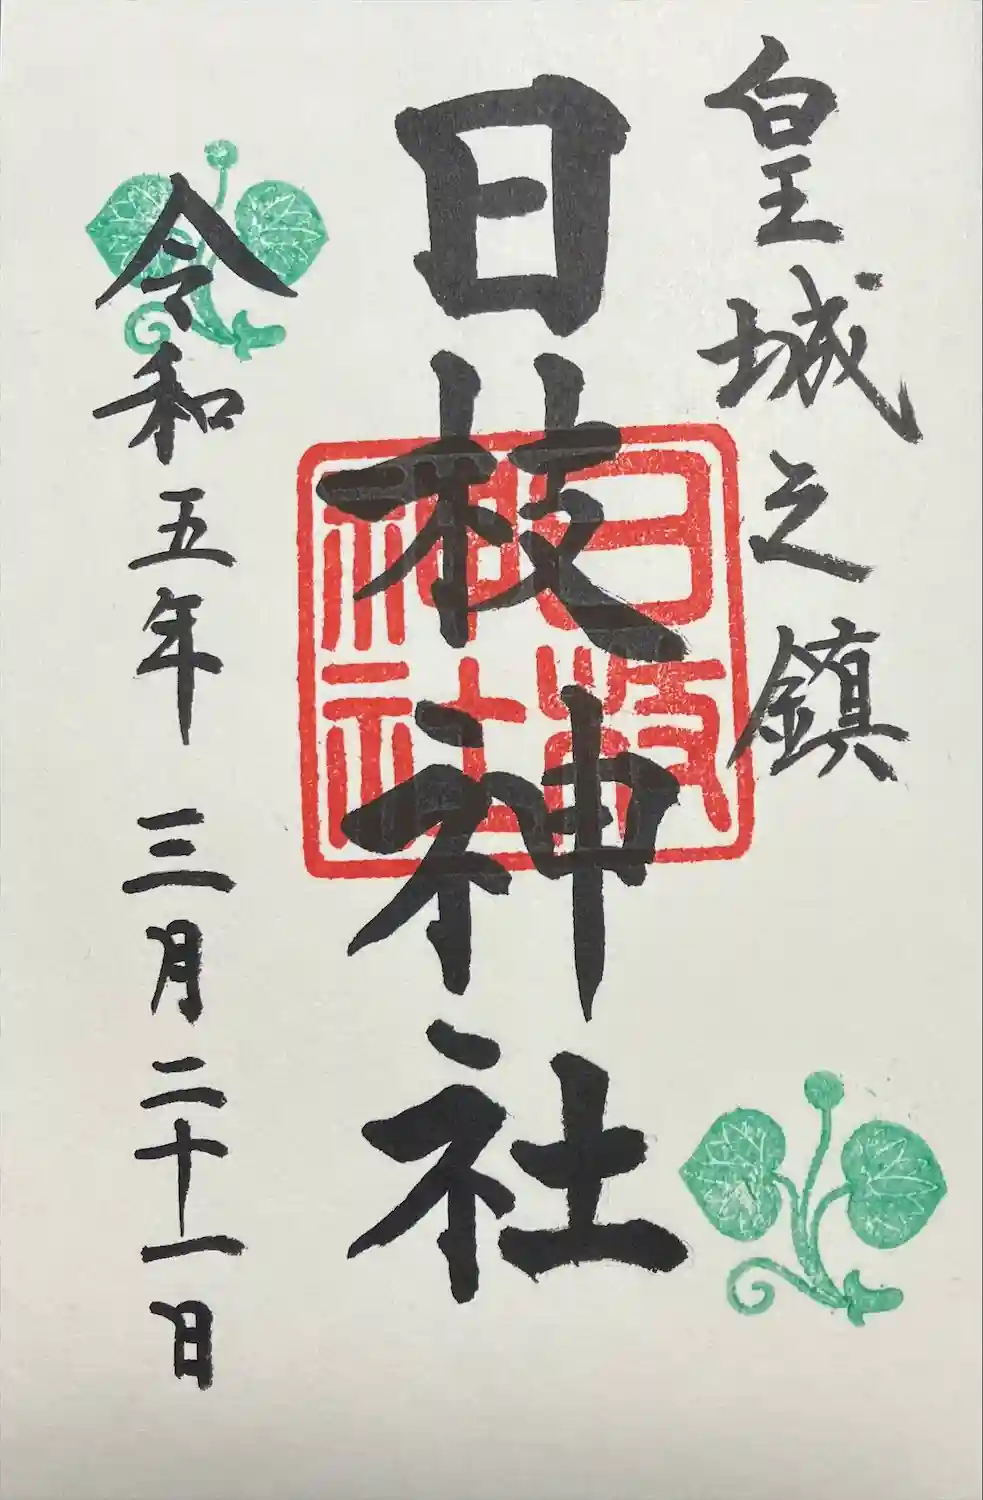 皇城之鎮
日枝神社
日枝
神社
令和五年 三月二十一日